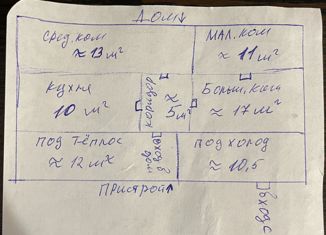 ДОМ↓
СРЕД. КОМ
≈ 13 м²
МАЛ. КОМ
≈ 11 м²
КУХНЯ
10 м²
КОРИДОР
≈
5 м²
Больш. Ком
≈ 17 м²
ПОД ТЁПЛОЕ
≈ 12 м²
ВХОД В
ДОМ
ПОД ХОЛОД
≈ 10,5
ПРИСТРОЙ↑
ВХОД С